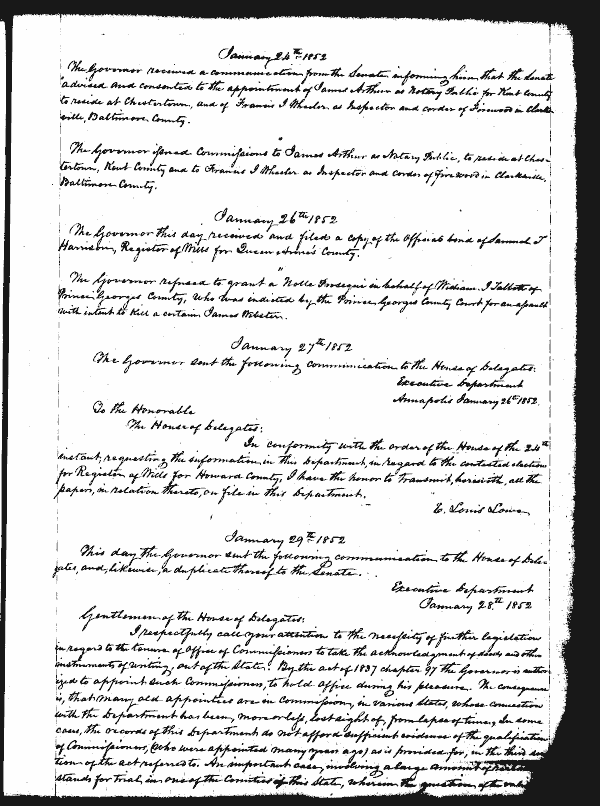 January 24th 1852
The Governor received a communication from the Senate, informing him that the Senate
advised and consented to the appointment of James Arthur as Notary Public for Kent County
to reside at Chestertown, and of Francis I Wheeler as Inspector and corder of Firewood in Clarks-
ville, Baltimore County.
"
The Governor issued Commissions to James Arthur as Notary Public, to reside at Ches-
tertown, Kent County and to Francis I Wheeler as Inspector and corder of firewood in Clarksville,
Baltimore County.
January 26th 1852
The Governor this day received and filed a copy of the Official bond of Samuel T
Harrison, Register of Wills for Queen Anne's County.
"
The Governor refused to grant a Nolle Prosequi in behalf of William I Talbott of
Prince Georges County, who was indicted by the Prince Georges County Court for an assault
with intent to kill a certain James Webster.
January 27th 1852
The Governor sent the following communication to the House of Delegates:
Executive Department
Annapolis January 26th 1852.
To the Honorable
The House of Delegates:
In conformity with the order of the House of the 24th
instant, requesting the information in this Department, in regard to the contested election
for Register of Wills for Howard County, I have the honor to transmit, herewith, all the
papers, in relation thereto, on file in this Department.
E. Louis Lowe.
January 29th 1852
This day the Governor sent the following communication to the House of Dele-
gates, and, likewise, a duplicate thereof to the Senate.
Executive Department
January 28th 1852
Gentlemen of the House of Delegates:
I respectfully call your attention to the necessity of further legislation
in regard to the tenure of Office of Commissioners to take the acknowledgment of deeds and other
instruments of writing, out of the State. By the act of 1837 chapter 97 the Governor is author-
ized to appoint such Commissioners, to hold office during his pleasure. The consequence
is, that many old appointees are in Commission, in various States, whose connection
with the Department has been, more or less, lost sight of, from lapse of time; In some
cases, the records of this Department do not afford sufficient evidence of the qualification
of Commissioners, (who were appointed many years ago) as is provided for, in the third sec-
tion of the act referred to. An important case, involving a large amount of
stands for trial in one of the Counties of this State, wherein the question of the